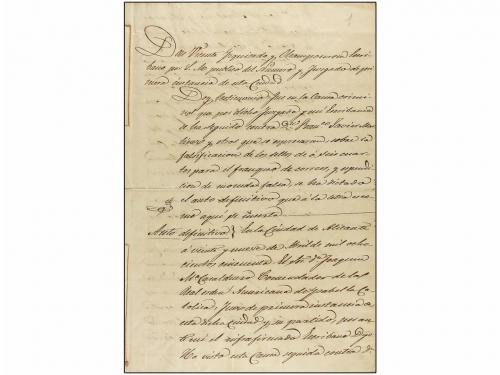 Don Vicente Izquierdo y Ocampo
bano por S. M. publico del Numero y Juzgado de pri
mera instancia de esta Ciudad
Doy testimonio: Que en la Causa crimi
nal que por dicho Juzgado y mi Escribania
se ha seguido contra Dn. Franco. Javier Mar
tinez y otros que se espresaran, sobre la
falsificacion de los sellos de á seis cuar
tos para el franqueo de correos, y espendi
cion de moneda falsa, se ha dictado
el auto definitivo que á la letra
aqui se inserta
Auto definitivo En la Ciudad de Alicante
á veinte y nueve de Abril de mil ocho
cientos cincuenta: El Sor. Dn. Joaquin
Ma. Comendador de la
Real orden Americana de Ysabel la Ca
tolica, Juez de primera instancia de
esta dicha Ciudad y su partido, por an
te mi el infrafirmado Escribano Dijo:
Ha visto esta Causa seguida contra D.